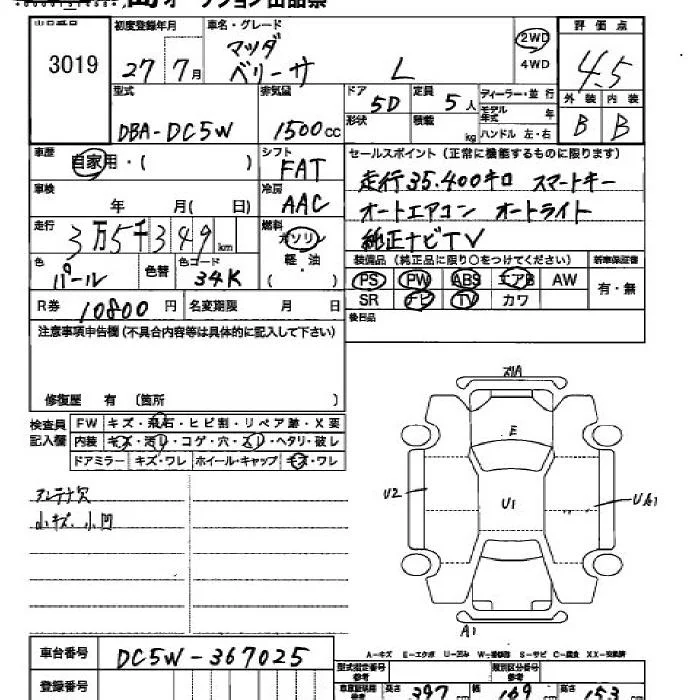 オークション出品票
出品番号 初度登録年月 車名・グレード 評価点
3019 27年7月 マツダ ベリーサ L 2WD 4WD 4.5
外装 内装
B B
型式 排気量 ドア 形状 定員 積載 ディーラー・並行
DBA-DC5W 1500cc 5D 5人 kg モデル年式 年
ハンドル 左・右
車歴 自家用・( ) シフト FAT
セールスポイント(正常に機能するものに限ります)
走行35.400キロ スマートキー
オートエアコン オートライト
純正ナビTV
車検 年 月( 日) 冷房 AAC
走行 3万5千349km 燃料 ガソリン 軽・油 ( )
色 パール 色替 色コード 34K
装備品(純正品に限り○をつけてください) 新車保証書
PS PW ABS エアB AW 有・無
SR ナビ TV カワ
R券 10800円 名変期限 月 日
後日品
注意事項申告欄(不具合内容等は具体的に記入して下さい)
修復歴 有 〔箇所 〕
検査員記入欄
FW キズ・飛石・ヒビ割・リペア跡・X要
内装 キズ・汚レ・コゲ・穴・スレ・ヘタリ・破レ
ドアミラー キズ・ワレ ホイール・キャップ キズ・ワレ
アンテナ欠
小キズ、小凹
ズリA
E
U2
U1
UA1
A1
A-キズ E-エクボ U-凹み W-補修跡 S-サビ C-腐食 XX-交換済
車台番号 DC5W-367025
登録番号
型式指定番号 参考 類別区分番号 参考
車庫証明用 参考 長さ 397cm 幅 169cm 高さ 153cm